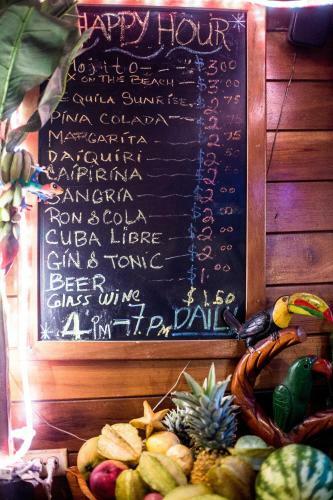 HAPPY HOUR
Mojito - - - $ 3 00
X ON THIS BEACH - $ 3 00
TEQUILA SUNRISE - $ 2 75
PINA COLADA - - $ 2 75
MARGARITA - - $ 2 75
DAIQUIRI
CAIPIRINA
SANGRIA
RON & COLA
CUBA LIBRE
GIN & TONIC
BEER
GLASS WINE $ 1.50
4 PM - 7 P.M DAILY